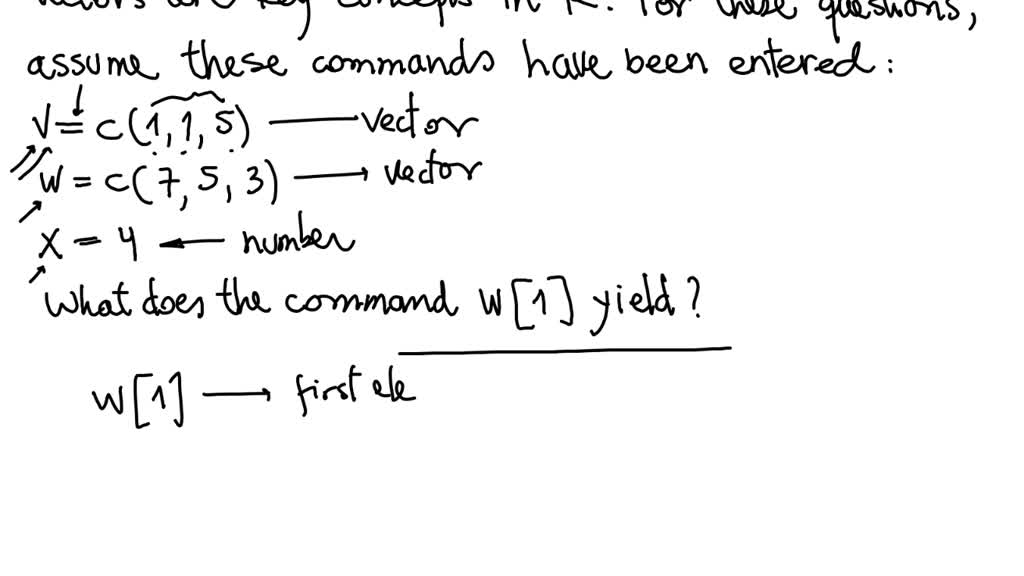 vectors are key concepts in R. For these questions,
assume these commands have been entered:
V = c(1,1,5) vector
W = c(7,5,3) → vector
X = 4 ← number
What does the command W[1] yield?
W[1] → first ele